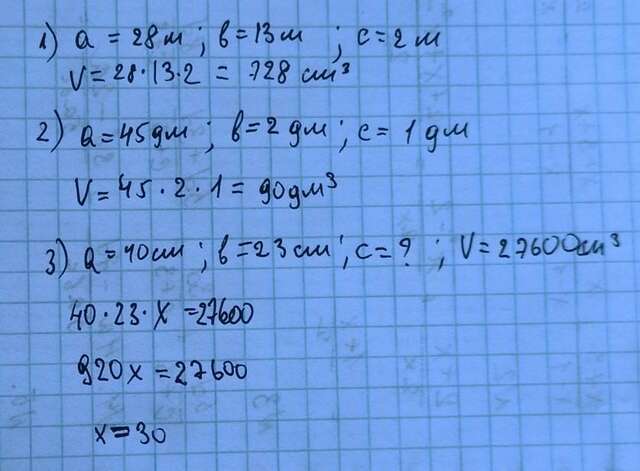 1) a = 28м ; в = 13м ; c = 2 м
V = 28 · 13 · 2 = 728 см³
2) a = 45дм ; в = 2 дм ; c = 1 дм
V = 45 · 2 · 1 = 90дм³
3) a = 40см ; в = 23 см ; c = ? ; V = 27600см³
40 · 23 · x = 27600
920x = 27600
x = 30